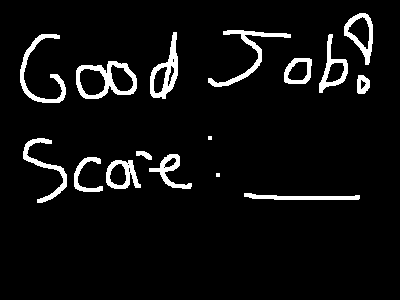 Good Job!
Score: ____